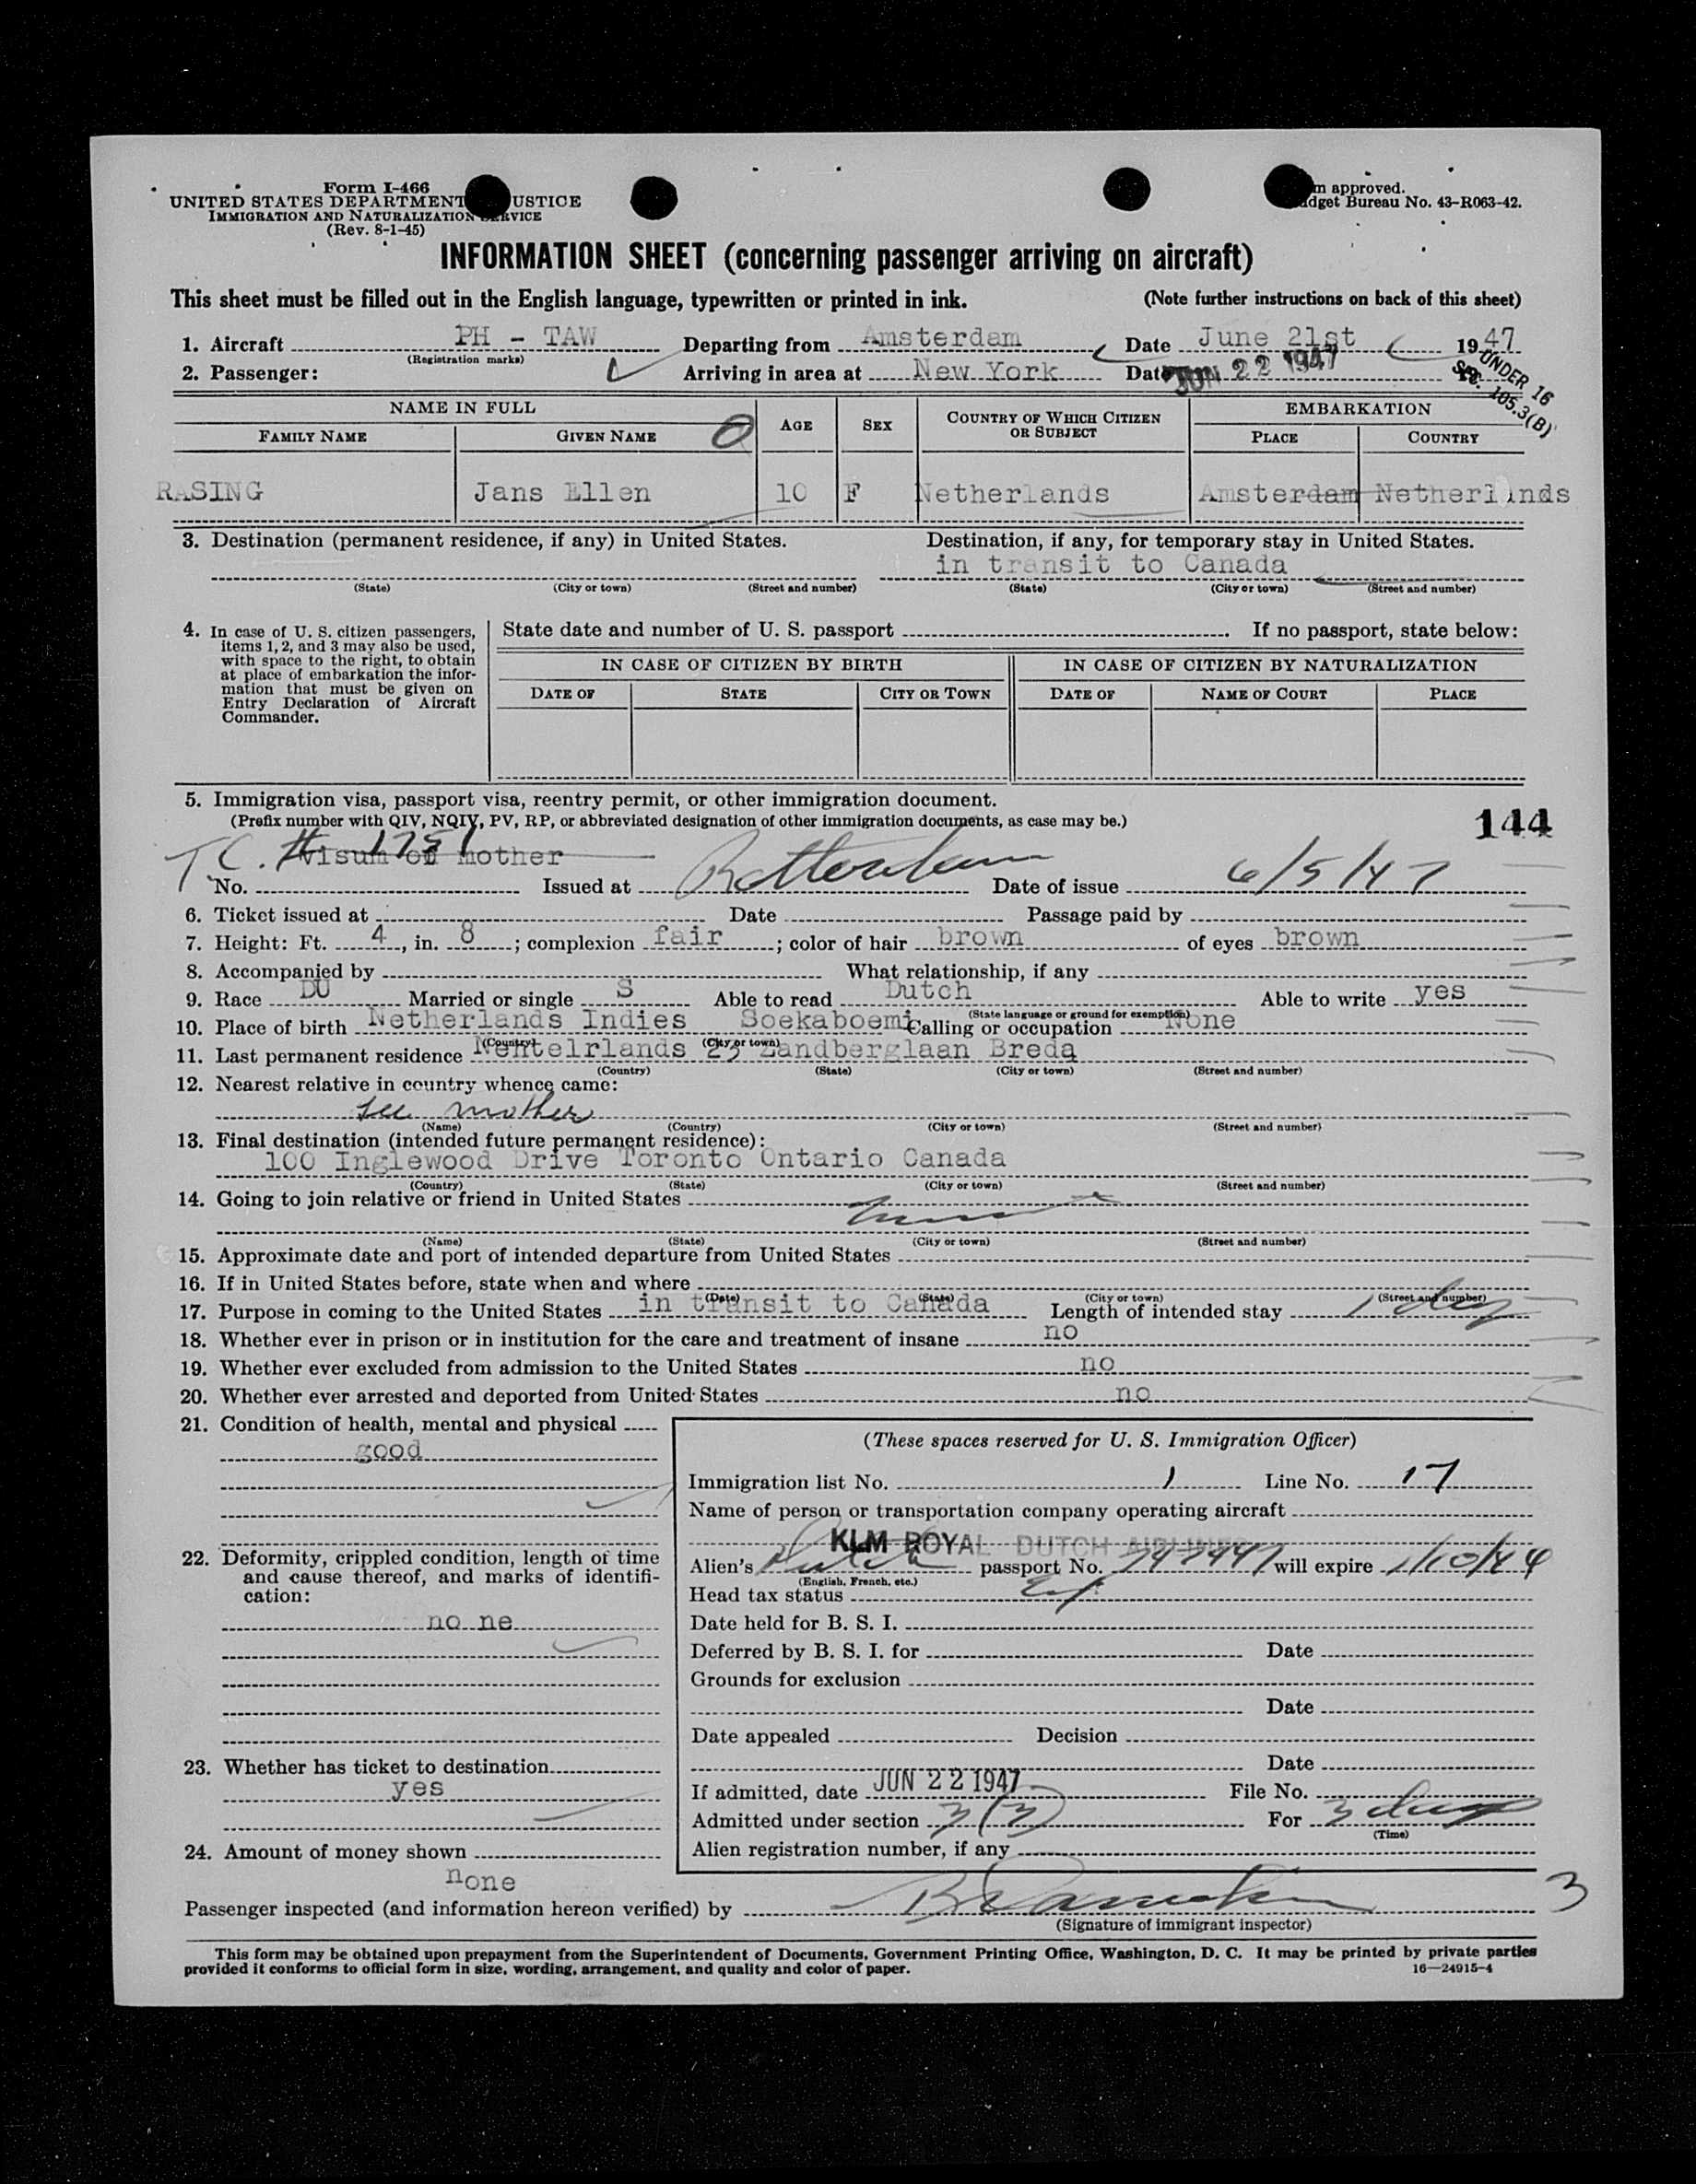 Form I-466
UNITED STATES DEPARTMENT USTICE
IMMIGRATION AND NATURALIZATION SERVICE
(Rev. 8-1-45)
m approved.
udget Bureau No. 43-R063-42.
INFORMATION SHEET (concerning passenger arriving on aircraft)
This sheet must be filled out in the English language, typewritten or printed in ink. (Note further instructions on back of this sheet)
1. Aircraft PH - TAW Departing from Amsterdam Date June 21st 1947
(Registration marks)
2. Passenger: Arriving in area at New York Date JUN 22 1947
UNDER 16
SEC. 105.3(B)
NAME IN FULL AGE SEX COUNTRY OF WHICH CITIZEN OR SUBJECT EMBARKATION
FAMILY NAME GIVEN NAME PLACE COUNTRY
RASING Jans Ellen 10 F Netherlands Amsterdam Netherlands
3. Destination (permanent residence, if any) in United States. Destination, if any, for temporary stay in United States.
in transit to Canada
(State) (City or town) (Street and number) (State) (City or town) (Street and number)
4. In case of U. S. citizen passengers, items 1, 2, and 3 may also be used, with space to the right, to obtain at place of embarkation the information that must be given on Entry Declaration of Aircraft Commander.
State date and number of U. S. passport If no passport, state below:
IN CASE OF CITIZEN BY BIRTH IN CASE OF CITIZEN BY NATURALIZATION
DATE OF STATE CITY OR TOWN DATE OF NAME OF COURT PLACE
5. Immigration visa, passport visa, reentry permit, or other immigration document.
(Prefix number with QIV, NQIV, PV, RP, or abbreviated designation of other immigration documents, as case may be.) 144
T.C. # 1751
Visum of mother
No. Issued at Rotterdam Date of issue 6/5/47
6. Ticket issued at Date Passage paid by
7. Height: Ft. 4, in. 8; complexion fair; color of hair brown of eyes brown
8. Accompanied by What relationship, if any
9. Race DU Married or single S Able to read Dutch Able to write yes
(State language or ground for exemption)
10. Place of birth Netherlands Indies Soekaboemi Calling or occupation None
(Country) (City or town)
11. Last permanent residence Nehtelrlands 23 Zandberglaan Breda
(Country) (State) (City or town) (Street and number)
12. Nearest relative in country whence came:
see mother
(Name) (Country) (City or town) (Street and number)
13. Final destination (intended future permanent residence):
100 Inglewood Drive Toronto Ontario Canada
(Country) (State) (City or town) (Street and number)
14. Going to join relative or friend in United States
(Name) (State) (City or town) (Street and number)
15. Approximate date and port of intended departure from United States
16. If in United States before, state when and where
(Date) (State) (City or town) (Street and number)
17. Purpose in coming to the United States in transit to Canada Length of intended stay 1 day
18. Whether ever in prison or in institution for the care and treatment of insane no
19. Whether ever excluded from admission to the United States no
20. Whether ever arrested and deported from United States no
21. Condition of health, mental and physical
good
22. Deformity, crippled condition, length of time and cause thereof, and marks of identification:
no ne
23. Whether has ticket to destination
yes
24. Amount of money shown
none
(These spaces reserved for U. S. Immigration Officer)
Immigration list No. 1 Line No. 17
Name of person or transportation company operating aircraft
KLM ROYAL DUTCH AIRLINES
Alien's Dutch passport No. 747447 will expire
(English, French, etc.)
Head tax status
Date held for B. S. I.
Deferred by B. S. I. for Date
Grounds for exclusion
Date
Date appealed Decision
Date
If admitted, date JUN 22 1947 File No.
Admitted under section 3(3) For 3 days
(Time)
Alien registration number, if any
Passenger inspected (and information hereon verified) by 3
(Signature of immigrant inspector)
This form may be obtained upon prepayment from the Superintendent of Documents, Government Printing Office, Washington, D. C. It may be printed by private parties
provided it conforms to official form in size, wording, arrangement, and quality and color of paper. 16—24915-4